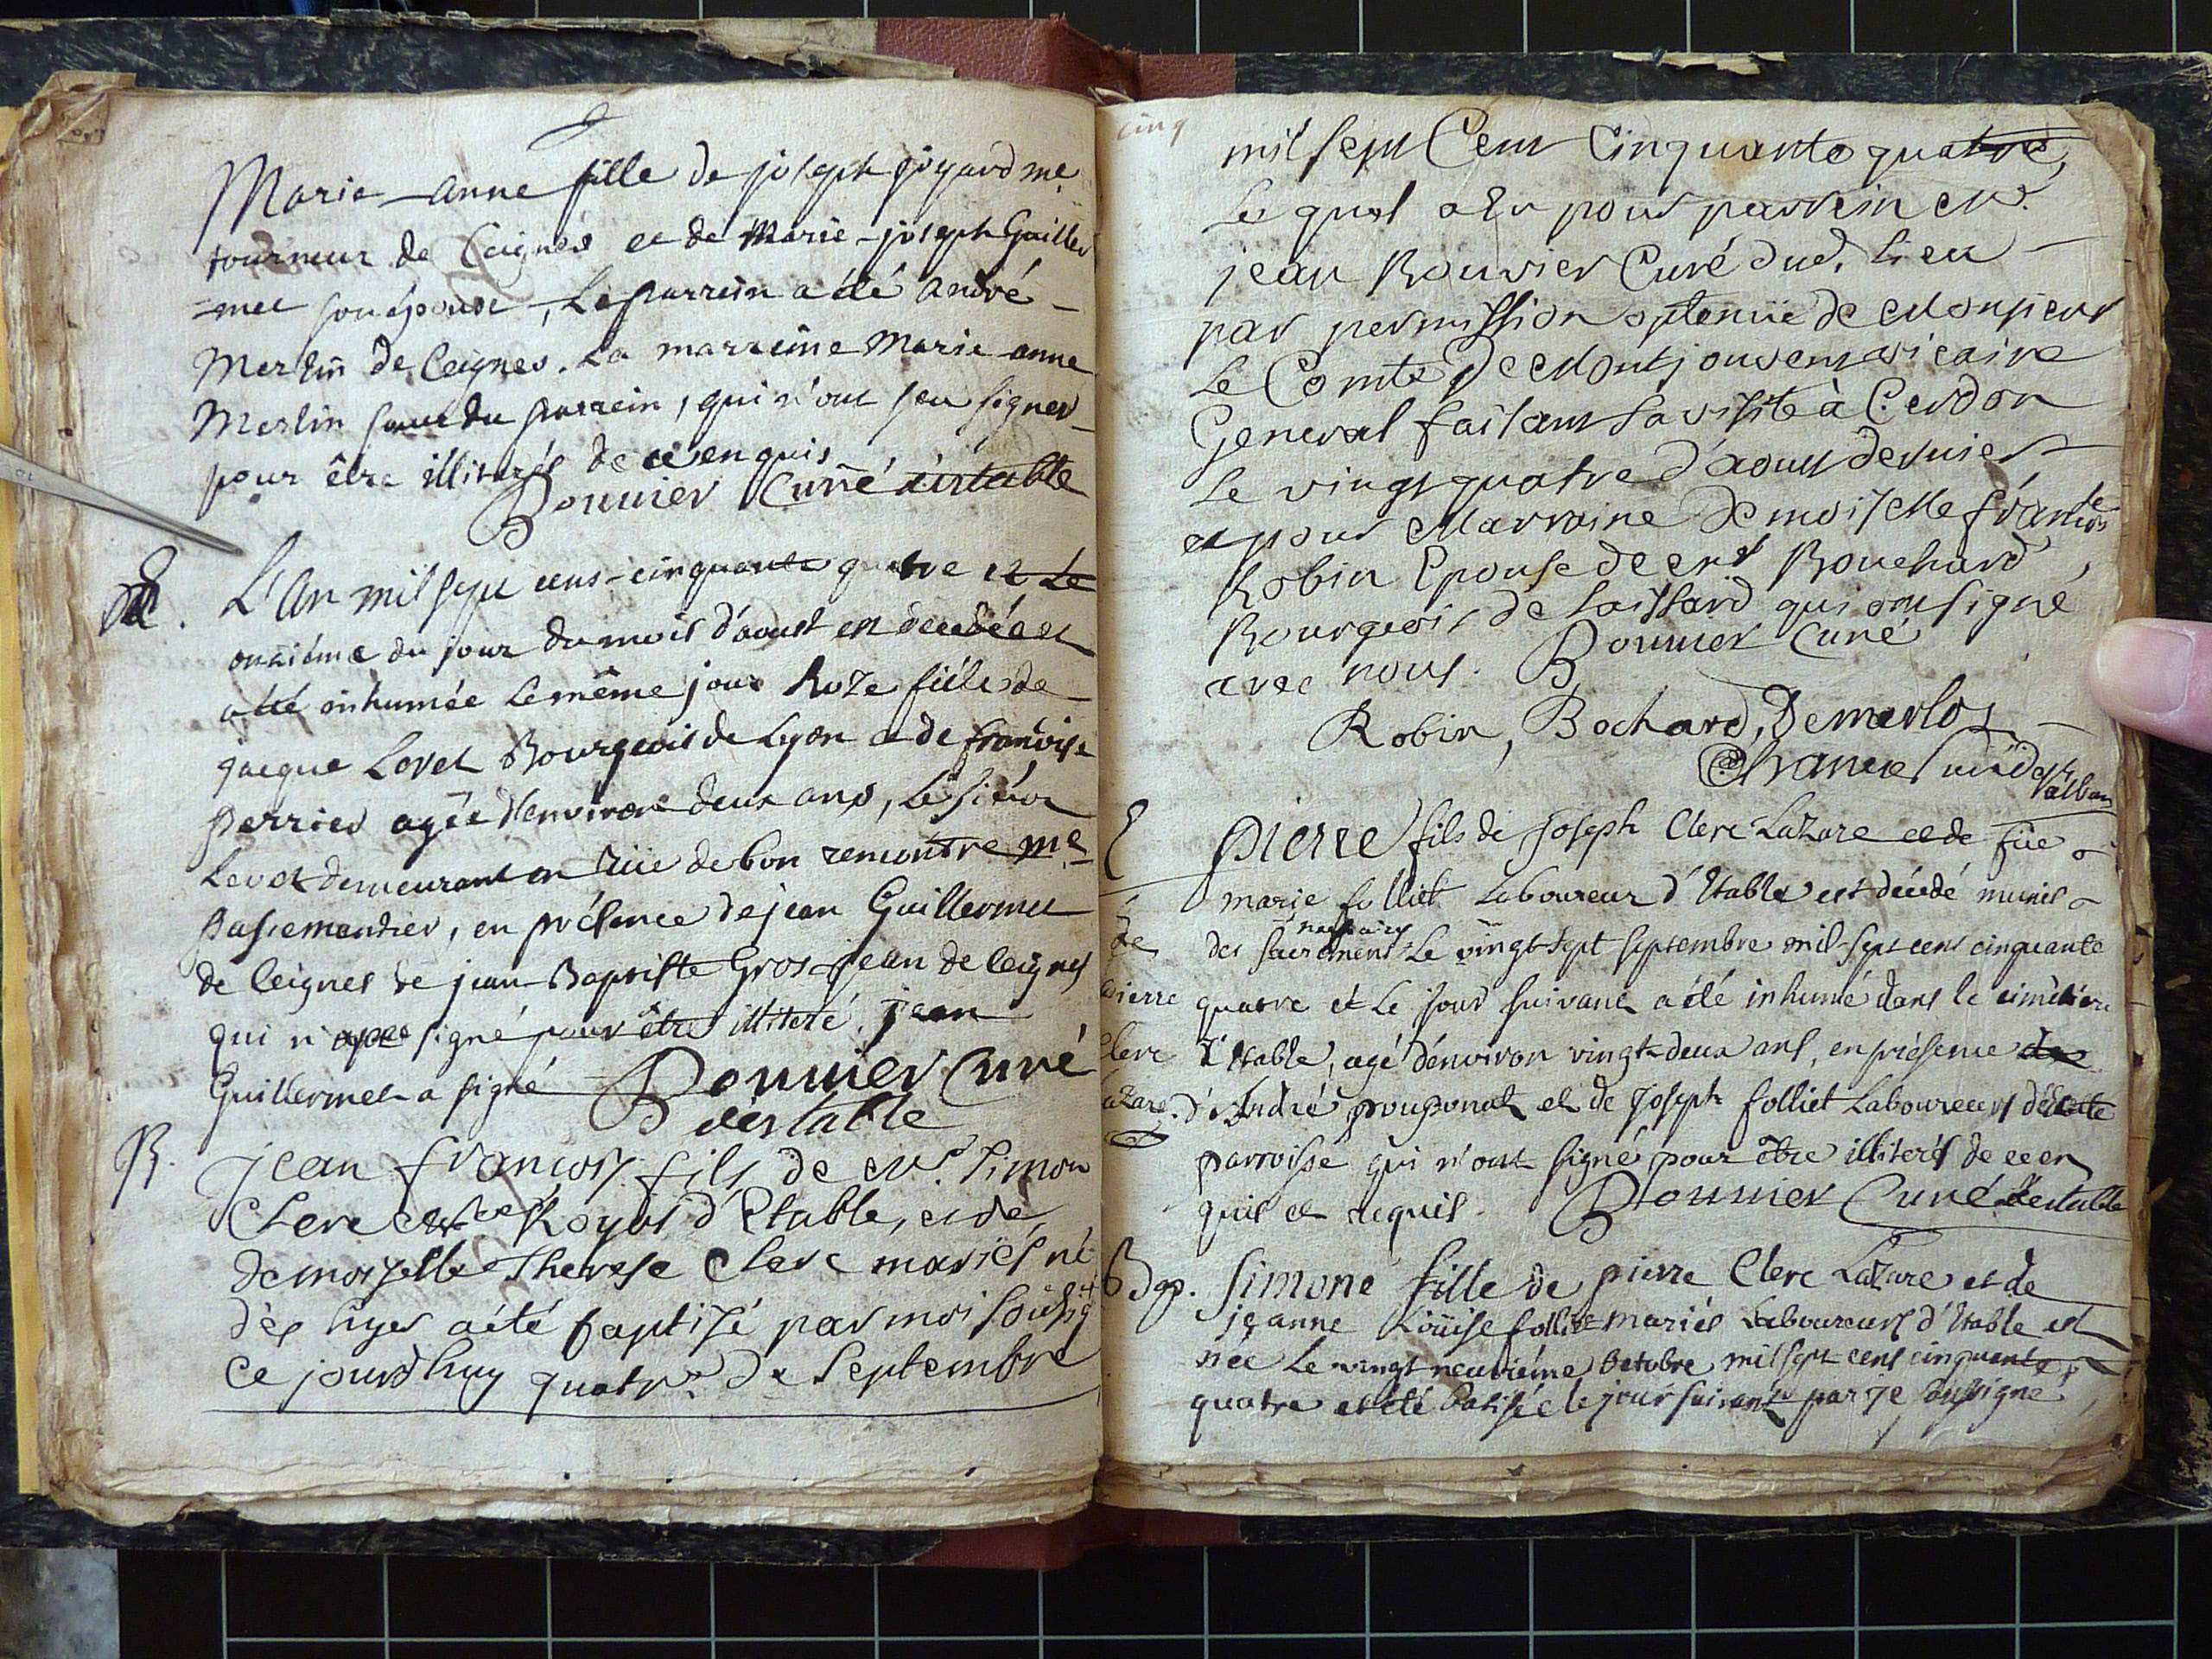 Marie-anne fille de joseph joyard me
tourneur de Ceignes et de Marie-joseph Guiller
=met son épouse, Le parrein a été André
Merlin de Ceignes. La marreine Marie anne
Merlin sœur du parrein, qui n'ont sçu signer
pour être illiterés de ce enquis
Bouvier Curé d'estable
L'An mil sept cens cinquante quatre et Le
onziéme du jour du mois d'aoust est decedée et
a été inhumée Le même jour Roze fille de
jacque Lovet Bourgeois de Lyon et de françoise
perrier agée d'environ deux ans, Le sieur
Lovet demeurant en rüe de bon rencontre me
passemandier, en présence de jean Guillermet
de Ceignes de jean-Baptiste Gros-jean de Ceignes
qui n'a signé pour être illiteré. jean
Guillermet a signé Bouvier Curé
d'estable
B. jean françois fils de Mr. Simon
Clerc Royal d'Etable, et de
demoiselle Therese Clerc mariés né
dès hyer a été baptisé par moi soussig
Ce jourdhuy quatre de Septembre
cinq
mil sept Cent Cinquante quatre,
Le quel a Eu pour parrein Mr.
jean Bouvier Curé dud. Lieu
par permission optenüe de Monsieur
Le Comte De Montjouvent vicaire
General faisant sa visite à Cerdon
Le vingt quatre d'aoust dernier
et pour Marraine Demoiselle françoise
Robin Epouse de Bouchard
Bourgeois de Laissard qui ont signé
avec nous. Bouvier Curé
Robin, Bochard, Demerloz
pierre fils de Joseph Clerc Lazare et de füe
marie folliet Laboureur d'Etable est décédé munis
des sacrements necessaires Le vingt sept septembre mil-sept cens cinquante
quatre et Le jour suivant a été inhumé dans le cimétiere
d'Etable, agé d'environ vingt-deux ans, en présence
d'André pougonat et de Joseph folliet Laboureurs de cette
parroisse qui n'ont signé pour être illiterés de ce en
quis et requis. Bouvier Curé d'estable
de
pierre
Clerc
Lazare.
Bap. Simone fille de pierre Clerc Lazare et de
jeanne Loüise folliet mariés Laboureurs d'Etable est
née Le vingt neuviéme Octobre mil sept cens cinquante
quatre et été Batisée le jour suivant par je soussigné